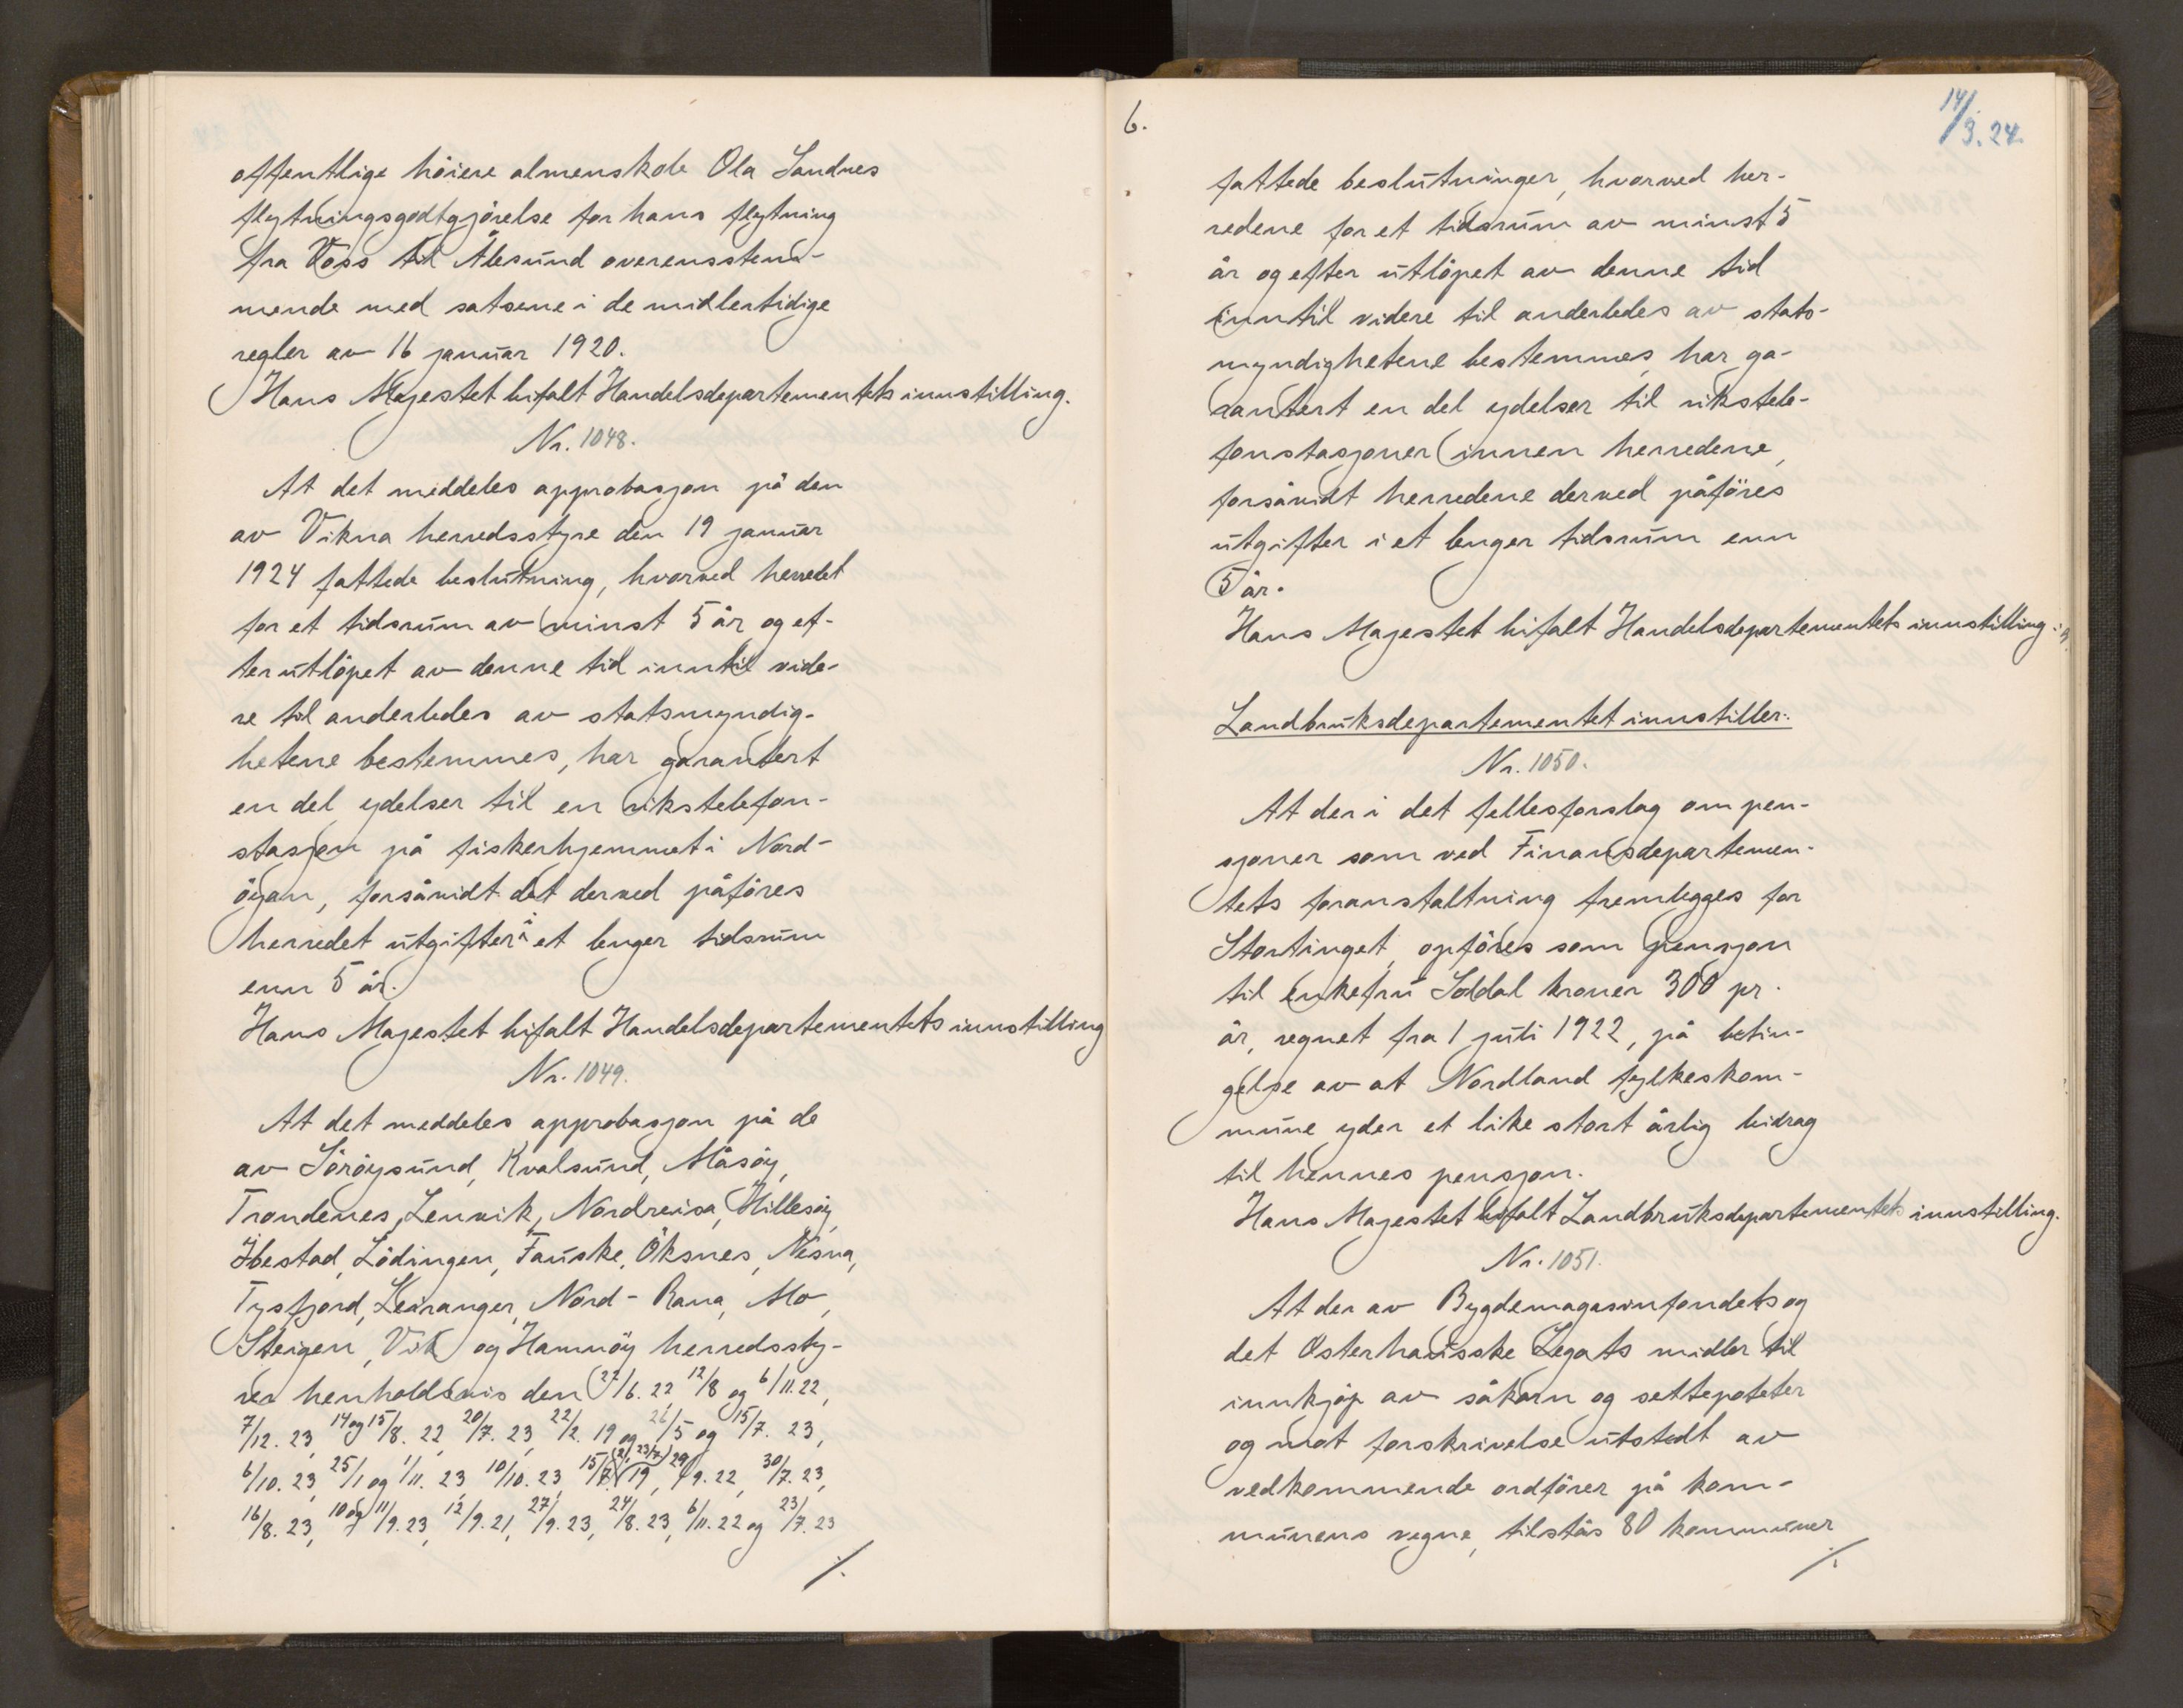 offentlige höiere almenskole Ola Sandnes
flytningsgodtgjörelse for hans flytning
fra Voss til Ålesund overensstem-
mende med satsene i de midlertidige
regler av 16 januar 1920.
Hans Majestet bifalt Handelsdepartementets innstilling.
Nr. 1048.
At det meddeles approbasjon på den
av Vikna herredsstyre den 19 januar
1924 fattede beslutning, hvorved herredet
for et tidsrum av minst 5 år og ef-
ter utlöpet av denne tid inntil vide-
re til anderledes av statsmyndig-
hetene bestemmes, har garantert
en del ydelser til en rikstelefon-
stasjon på fiskerhjemmet i Nord-
öyan, forsåvidt det derved påföres
herredet utgifter i et lenger tidsrum
enn 5 år.
Hans Majestet bifalt Handelsdepartementets innstilling
Nr. 1049.
At det meddeles approbasjon på de
av Söröysund, Kvalsund, Måsöy,
Trondenes, Lenvik, Nordreisa, Hillesöy,
Ibestad, Lödingen, Fauske, Öksnes, Nesna,
Tysfjord, Leiranger, Nord-Rana, Mo,
Steigen, Vik og Hamnöy herredssty-
rer henholdsvis den 27/6. 22, 12/8 og 6/11. 22,
7/12. 23, 14 og 15/8. 22, 20/7. 23, 22/2. 19 og 26/5 og 15/7. 23,
6/10. 23, 25/1 og 1/11. 23, 10/10. 23, 15/8 19, 29/9. 22, 30/7. 23,
16/8. 23, 10 og 11/9. 23, 12/9. 21, 27/9. 23, 24/8. 23, 6/11. 22 og 23/7. 23
./.
6.
14/3. 24.
fattede beslutninger, hvorved her-
redene for et tidsrum av minst 5
år og efter utlöpet av denne tid
inntil videre til anderledes av stats-
myndighetene bestemmes, har ga-
rantert en del ydelser til rikstele-
fonstasjoner innen herredene,
forsåvidt herredene derved påföres
utgifter i et lenger tidsrum enn
5 år.
Hans Majestet bifalt Handelsdepartementets innstilling
Landbruksdepartementet innstiller:
Nr. 1050.
At der i det fellesforslag om pen-
sjoner som ved Finansdepartemen-
tets foranstaltning fremlegges for
Stortinget, opföres som pensjon
til enkefru Soldal kroner 300 pr.
år, regnet fra 1 juli 1922, på betin-
gelse av at Nordland fylkeskom-
mune yder et like stort årlig bidrag
til hennes pensjon.
Hans Majestet bifalt Landbruksdepartementets innstilling.
Nr. 1051.
At der av Bygdemagasinfondets og
det Osterhausske Legats midler til
innkjöp av såkorn og settepoteter
og mot forskrivelse utstedt av
vedkommende ordförer på kom-
munens vegne, tilstås 80 kommuner
./.